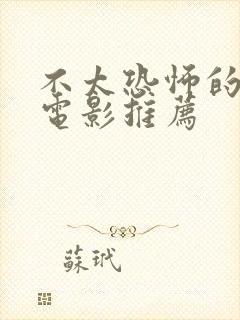 不太恐怖的
電影推薦
蘇玳